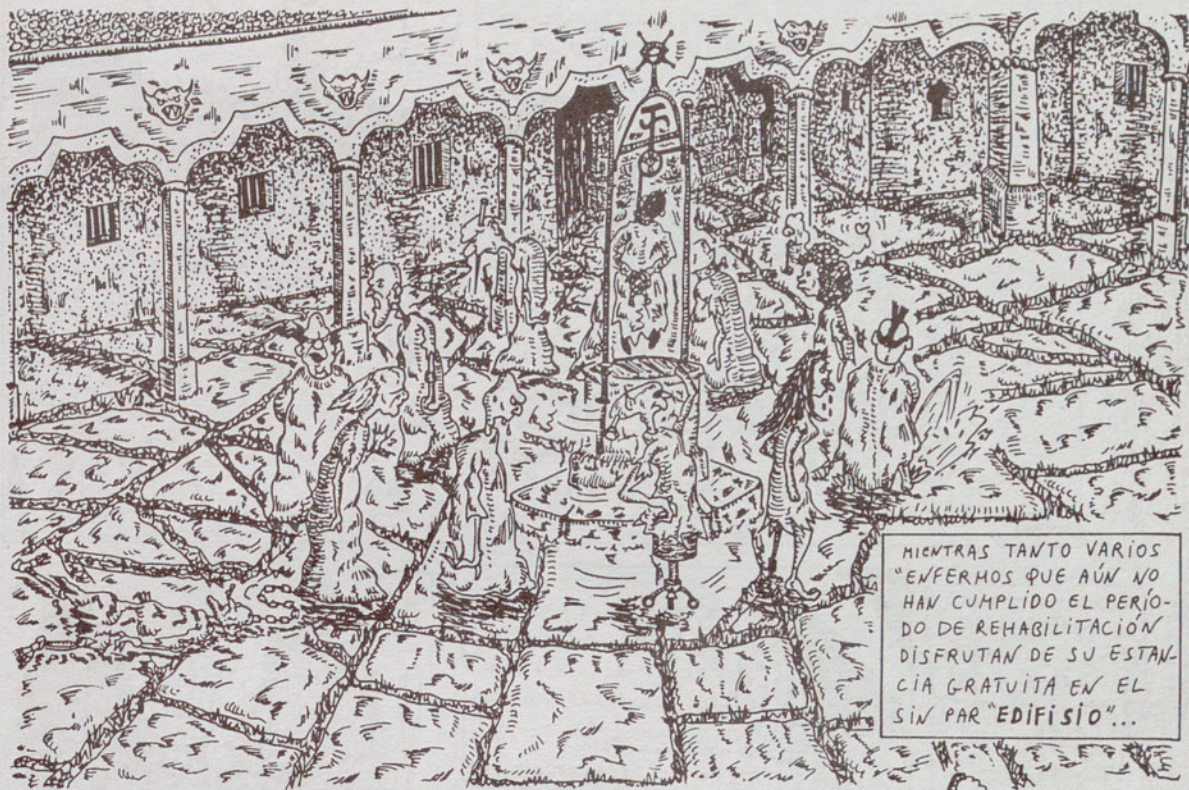 MIENTRAS TANTO VARIOS
"ENFERMOS QUE AÚN NO
HAN CUMPLIDO EL PERÍO-
DO DE REHABILITACIÓN
DISFRUTAN DE SU ESTAN-
CIA GRATUITA EN EL
SIN PAR "EDIFISIO"...